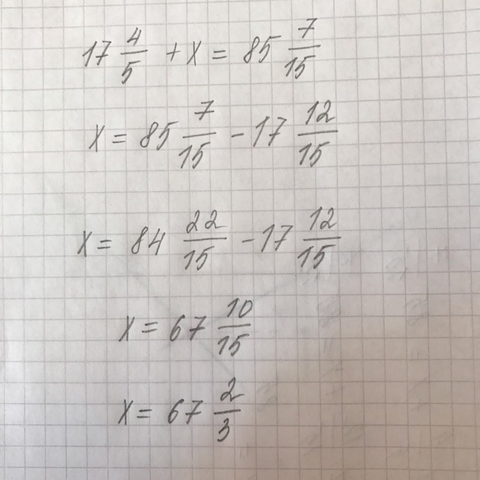 17 4/5 + x = 85 7/15
x = 85 7/15 - 17 12/15
x = 84 22/15 - 17 12/15
x = 67 10/15
x = 67 2/3